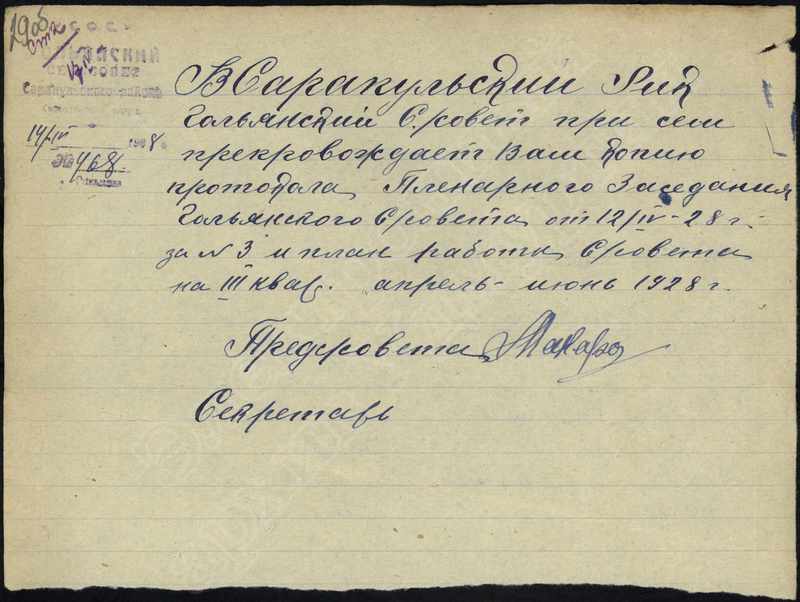 1908
Р.С.Ф.С.Р.
СЕЛЬСОВЕТ
Сарапульского района
14/IV 1928 г.
№ 468
В Сарапульский Рик
Гольянский С.совет при сем
прекровождает Вам копию
протокола Пленарного Заседания
Гольянского С/совета от 12/IV-28 г.
за № 3 и план работы С/совета
на III квар. апрель-июнь 1928 г.
Предс/совета
Секретарь